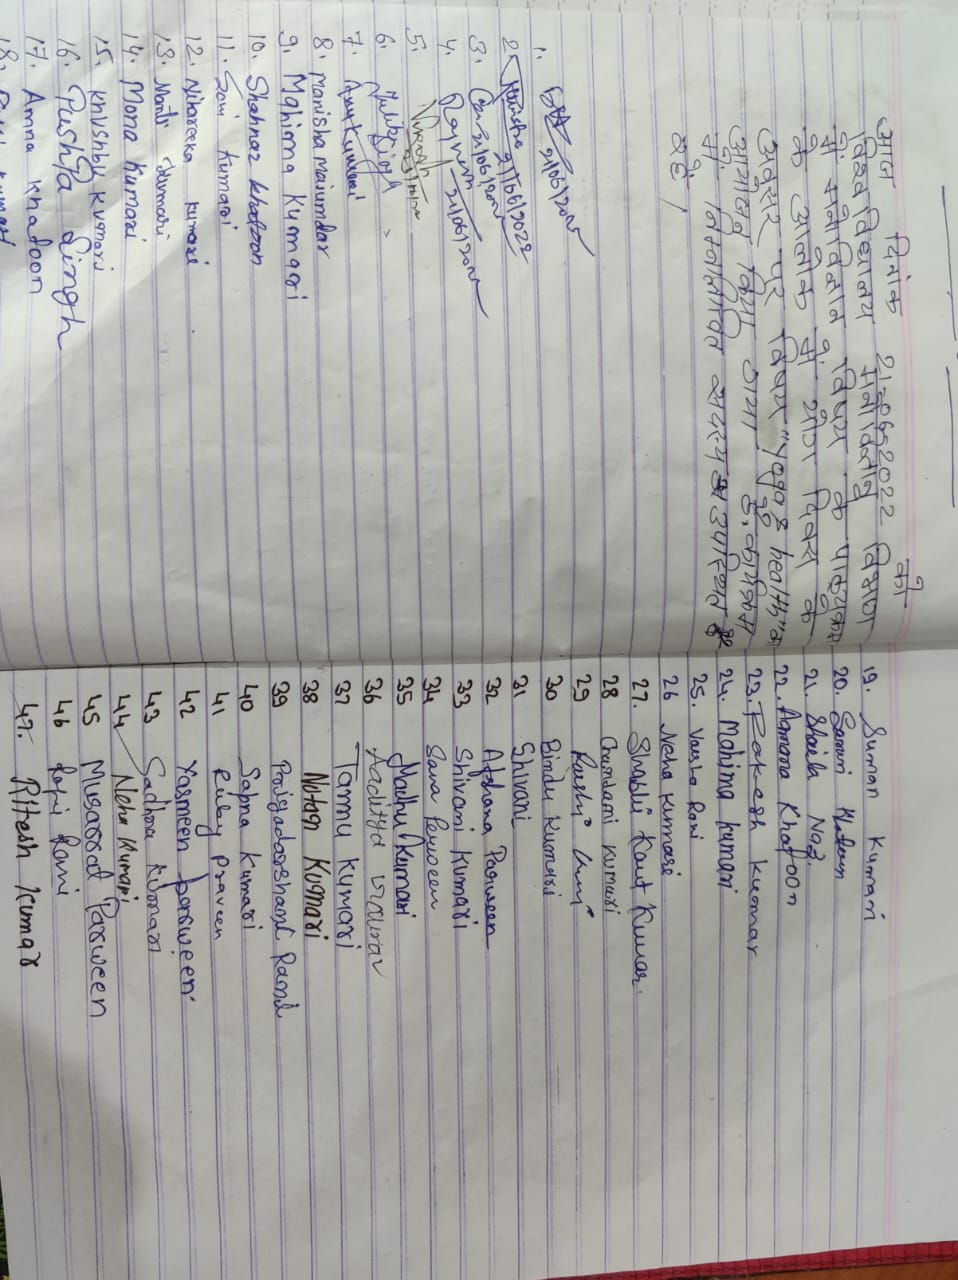 आज दिनांक 21-06-2022 को
विश्वविद्यालय मनोविज्ञान विभाग
में मनोविज्ञान विषय के पाठ्यक्रम
के आलोक में योग दिवस के
अवसर पर विषय "yoga & health" का
आयोजन किया गया है, कार्यक्रम
में निम्नलिखित सदस्य उपस्थित
रहे।
1. 21/06/2022
2. 21/06/2022
3. 21/06/2022
4. 21/06/2022
5.
6.
7. Kumari
8. Manisha majumdar
9. Mahima Kumari
10. Shahnaz khatoon
11. Soni kumari
12. Nihareeka kumari
13. Kumari
14. Mona Kumari
15. Khushbu kumari
16. Pushpa Singh
17. Amna Khatoon
18.
19. Suman Kumari
20. Khatoon
21. Shaila Naz
22. Asmma Khatoon
23. Rakesh kumar
24. Mahima kumari
25. Varsha Rani
26 Neha kumari
27. Shashi Kant Kumar
28 Chandani kumari
29
30 Bindu kumari
31 Shivani
32 Afshana Parween
33 Shivani kumari
34 Sana Perween
35 Madhu kumari
36 Aaditya
37 Tannu Kumari
38 Nutan Kumari
39 Priyadarshani Rani
40 Sapna Kumari
41 Ruby praveen
42 Yasmeen Parween
43 Sadhna kumari
44 Neha Kumari
45 Musarrat Parween
46 Rani
47. Ritesh Kumar